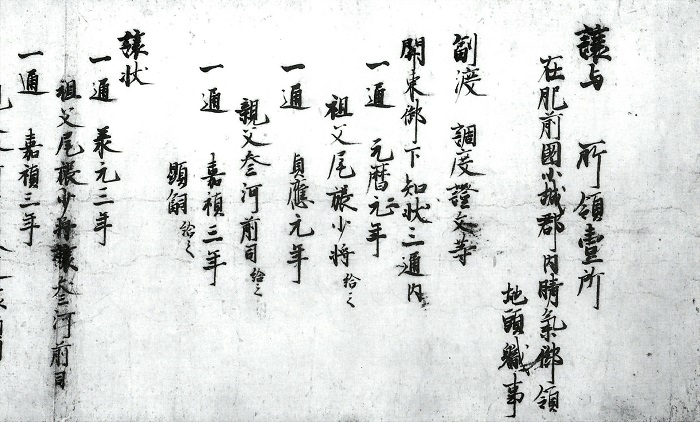 譲与 所領壹所
在肥前國小城郡内晴氣御領
地頭職事
副渡 調度證文等
関東御下知状三通内
一通 元暦元年
祖父尾張少将給之
一通 貞應元年
親父叅河前司給之
一通 嘉禎三年
顕嗣給之
譲状
一通 承元三年
祖父尾張少将譲叅河前司
一通 嘉禎三年